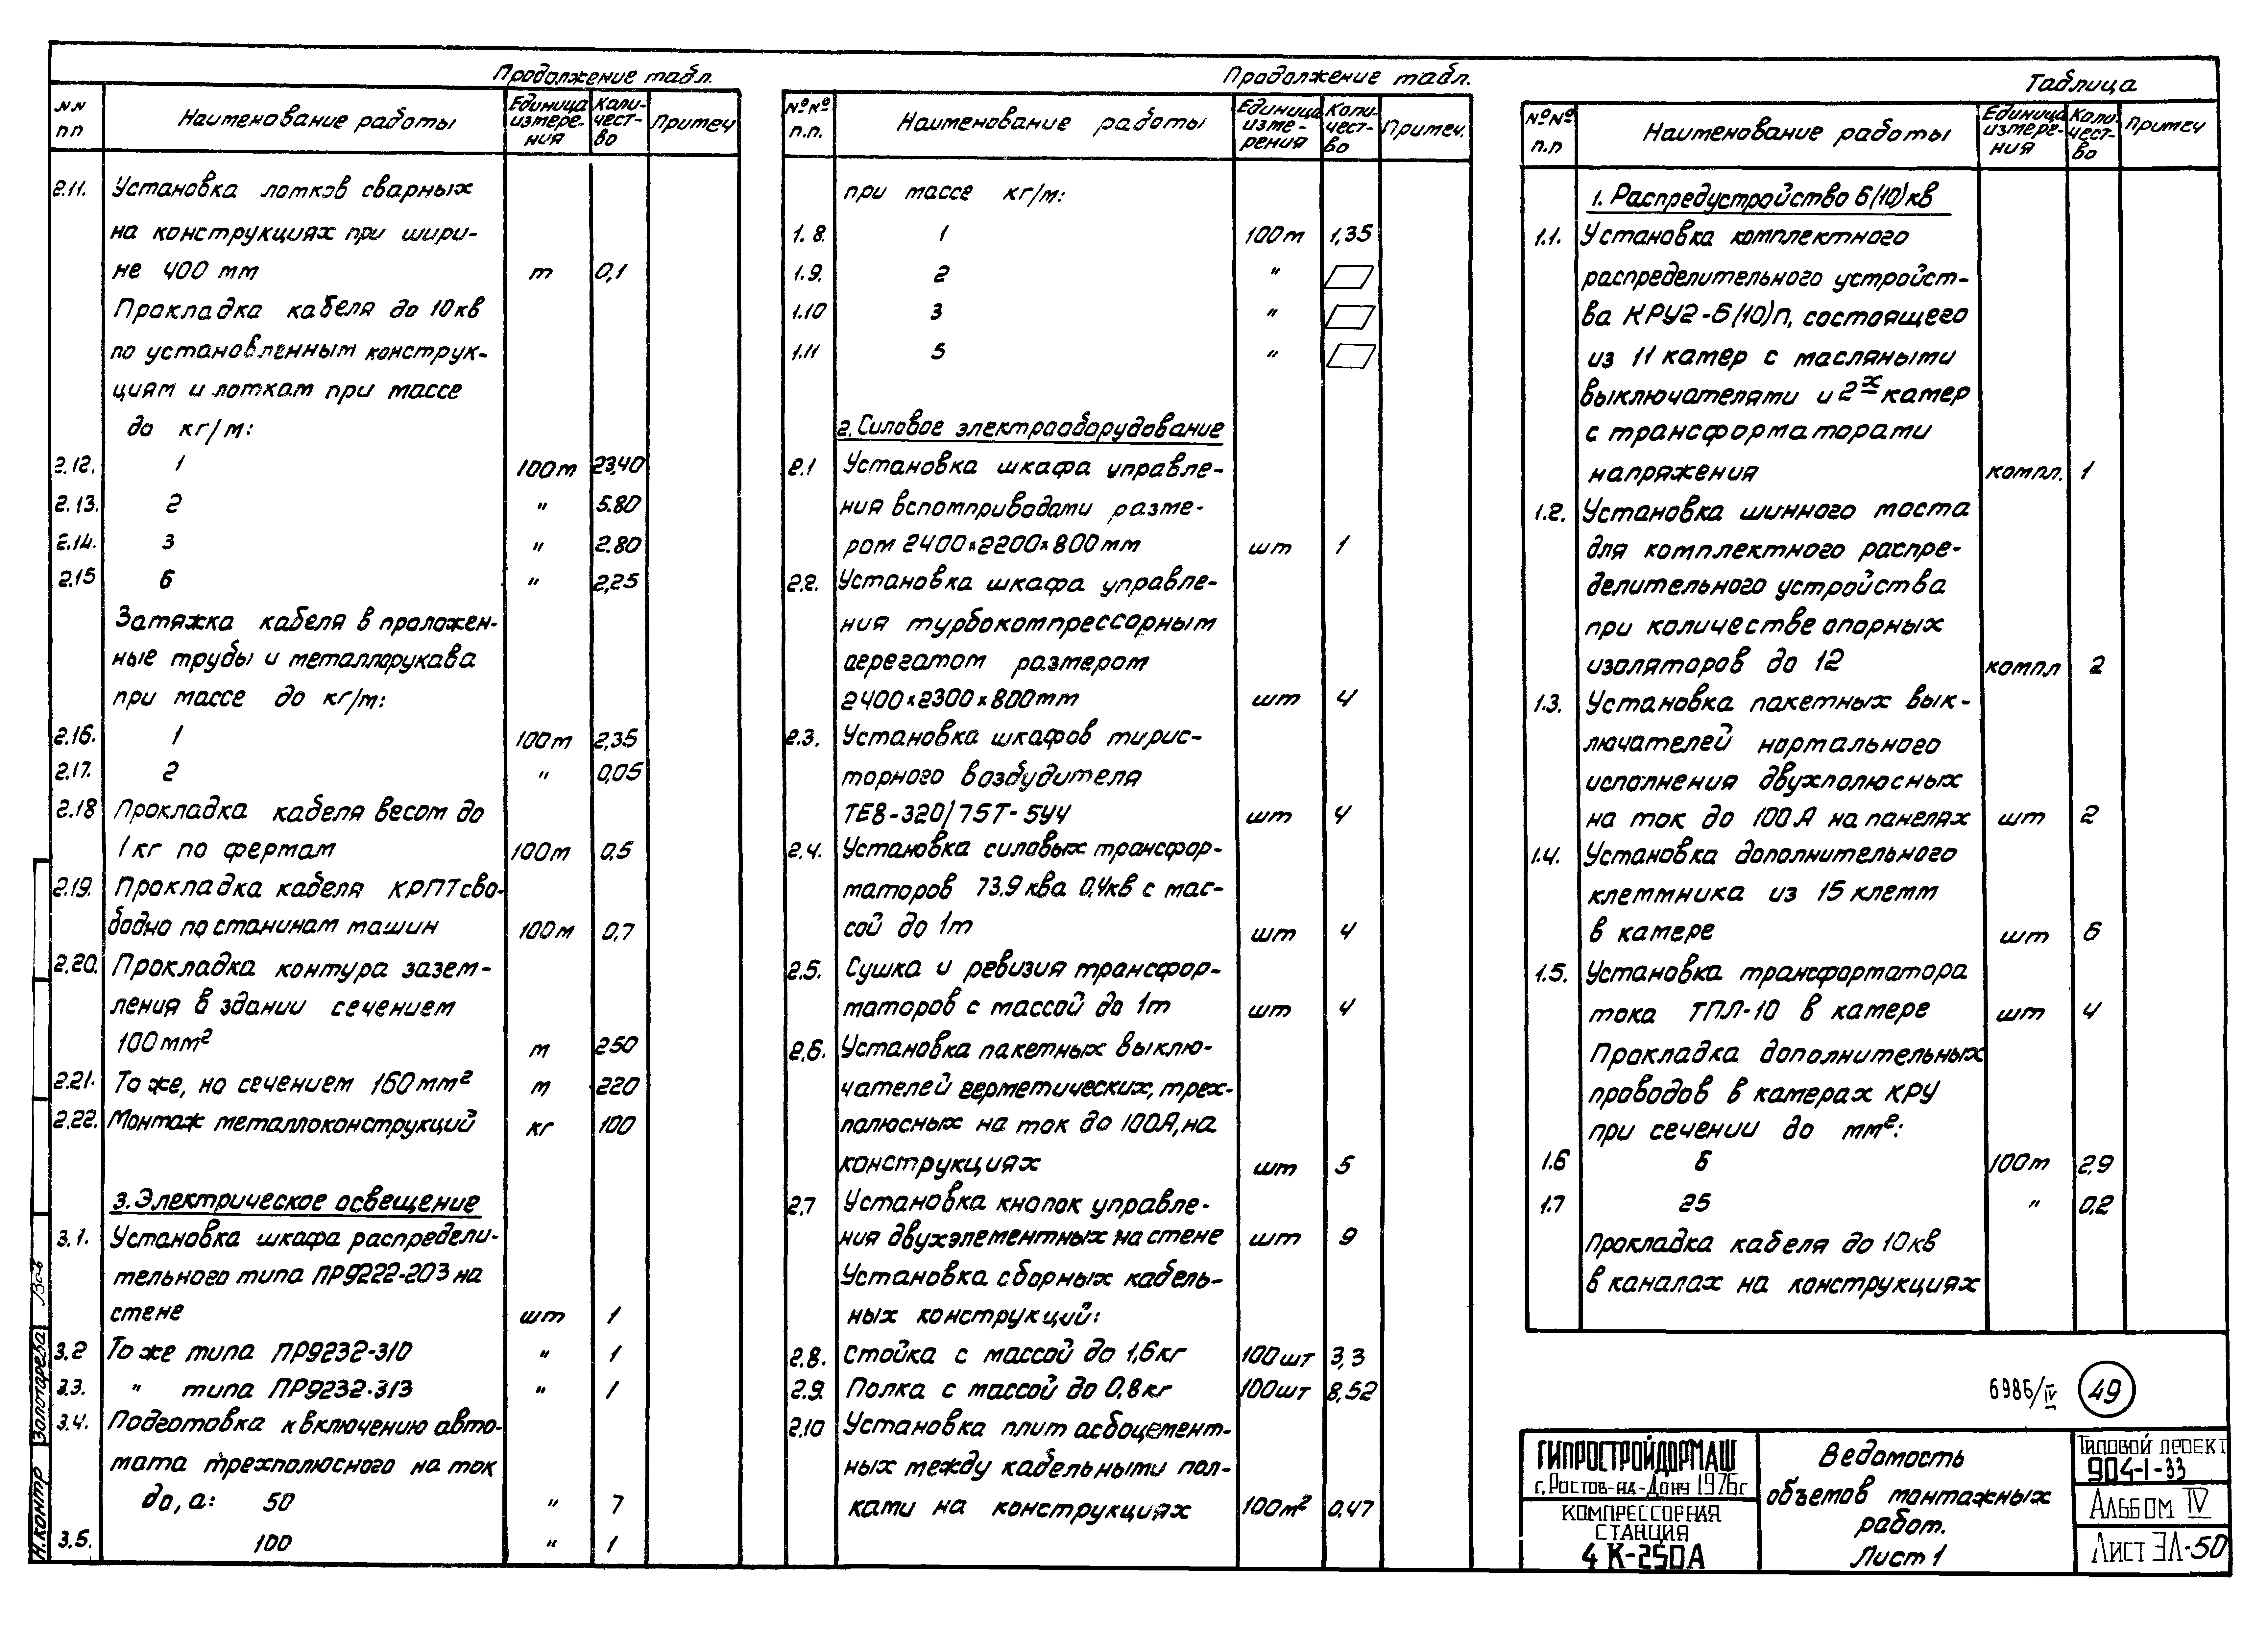 Продолжение табл.
NN пп | Наименование работы | Единица измерения | Количест-во | Примеч
2.11. Установка лотков сварных
на конструкциях при шири-
не 400 мм т 0,1
Прокладка кабеля до 10кв
по установленным конструк-
циям и лоткам при массе
до кг/м:
2.12. 1 100м 23,40
2.13. 2 " 5.80
2.14. 3 " 2.80
2.15 6 " 2,25
Затяжка кабеля в проложен-
ные трубы и металлорукава
при массе до кг/м:
2.16. 1 100м 2,35
2.17. 2 " 0,05
2.18 Прокладка кабеля весом до
1кг по фермам 100м 0,5
2.19. Прокладка кабеля КРПТ сво-
бодно по станинам машин 100м 0,7
2.20. Прокладка контура зазем-
ления в здании сечением
100мм² м 250
2.21. То же, но сечением 160мм² м 220
2.22. Монтаж металлоконструкций кг 100
3. Электрическое освещение
3.1. Установка шкафа распредели-
тельного типа ПР9222-203 на
стене шт 1
3.2 То же типа ПР9232-310 " 1
3.3. " типа ПР9232-313 " 1
3.4. Подготовка к включению авто-
мата трехполюсного на ток
до, а: 50 " 7
3.5. 100 " 1
Продолжение табл.
№№ п.п. | Наименование работы | Единица изме-рения | Коли-чест-во | Примеч.
при массе кг/м:
1.8. 1 100м 1,35
1.9. 2 "
1.10 3 "
1.11 5 "
2. Силовое электрооборудование
2.1 Установка шкафа управле-
ния вспомприводами разме-
ром 2400х2200х800мм шт 1
2.2. Установка шкафа управле-
ния турбокомпрессорным
агрегатом размером
2400х2300х800мм шт 4
2.3. Установка шкафов тирис-
торного возбудителя
ТЕ8-320/75Т-5У4 шт 4
2.4. Установка силовых трансфор-
маторов 73.9 ква 0.4кв с мас-
сой до 1т шт 4
2.5. Сушка и ревизия трансфор-
маторов с массой до 1т шт 4
2.6. Установка пакетных выклю-
чателей герметических, трех-
полюсных на ток до 100А, на
конструкциях шт 5
2.7 Установка кнопок управле-
ния двухэлементных на стене шт 9
Установка сборных кабель-
ных конструкций:
2.8. стойка с массой до 1,6кг 100шт 3,3
2.9. Полка с массой до 0,8кг 100шт 8,52
2.10 Установка плит асбоцемент-
ных между кабельными пол-
ками на конструкциях 100м² 0,47
Таблица
№№ п.п | Наименование работы | Единица измере-ния | Коли-чест-во | Примеч
1. Распредустройство 6(10)кв
1.1. Установка комплектного
распределительного устройст-
ва КРУ2-6(10)П, состоящего
из 11 камер с масляными
выключателями и 2х камер
с трансформаторами
напряжения компл. 1
1.2. Установка шинного моста
для комплектного распре-
делительного устройства
при количестве опорных
изоляторов до 12 компл 2
1.3. Установка пакетных вык-
лючателей нормального
исполнения двухполюсных
на ток до 100А на панелях шт 2
1.4. Установка дополнительного
клеммника из 15 клемм
в камере шт 6
1.5. Установка трансформатора
тока ТПЛ-10 в камере шт 4
Прокладка дополнительных
проводов в камерах КРУ
при сечении до мм²:
1.6 6 100м 2,9
1.7 25 " 0,2
Прокладка кабеля до 10кв
в каналах на конструкциях
6986/IV 49
ГИПРОСТРОЙДОРМАШ
г. Ростов-на-Дону 1976г
КОМПРЕССОРНАЯ
СТАНЦИЯ
4 К-250А
Ведомость
объемов монтажных
работ.
Лист 1
Типовой проект
904-1-33
Альбом IV
Лист ЭЛ-50
Н.контр Золотарева